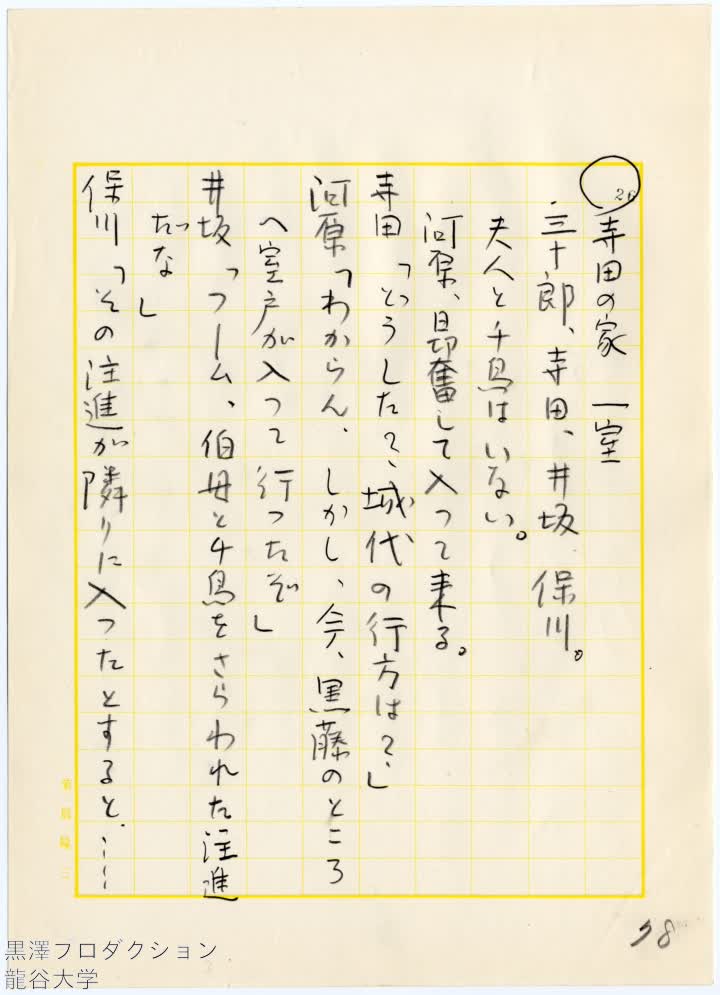 26
寺田の家 一室
三十郎、寺田、井坂 保川。
夫人と千鳥はいない。
河原、昂奮して入って来る。
寺田「どうした？、城代の行方は？」
河原「わからん、しかし、今、黒藤のところ
へ室戸が入って行ったぞ」
井坂「フーム、伯母と千鳥をさらわれた注進
だな」
保川「その注進が隣りに入ったとすると、……
58
黒澤プロダクション
龍谷大学